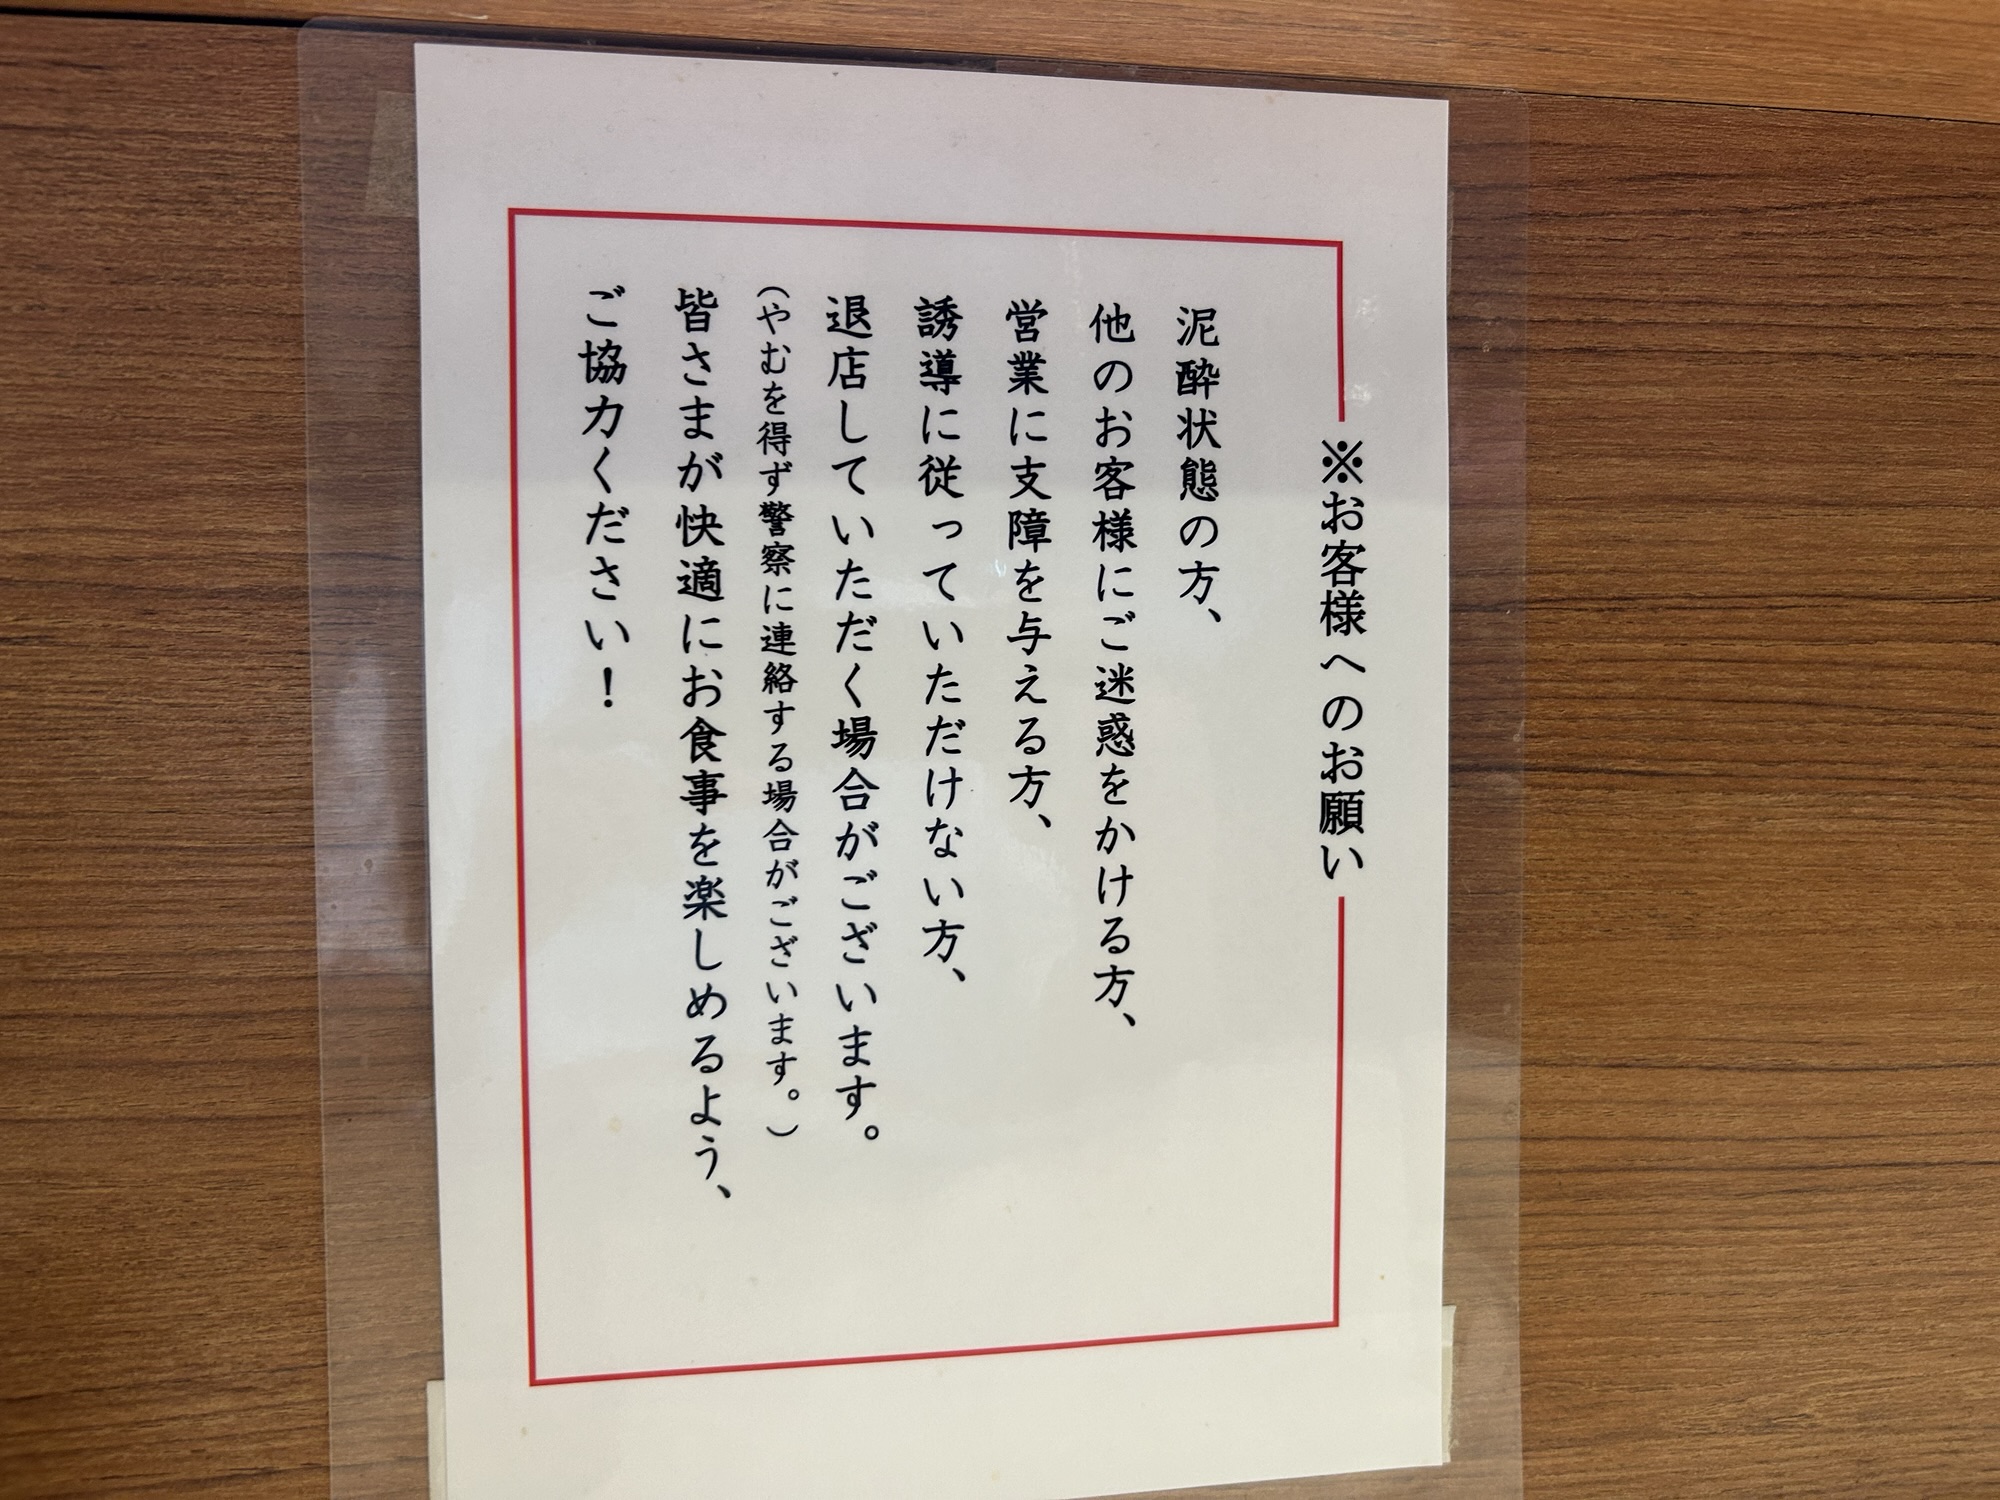 ※お客様へのお願い
泥酔状態の方、
他のお客様にご迷惑をかける方、
営業に支障を与える方、
誘導に従っていただけない方、
退店していただく場合がございます。
（やむを得ず警察に連絡する場合がございます。）
皆さまが快適にお食事を楽しめるよう、
ご協力ください！